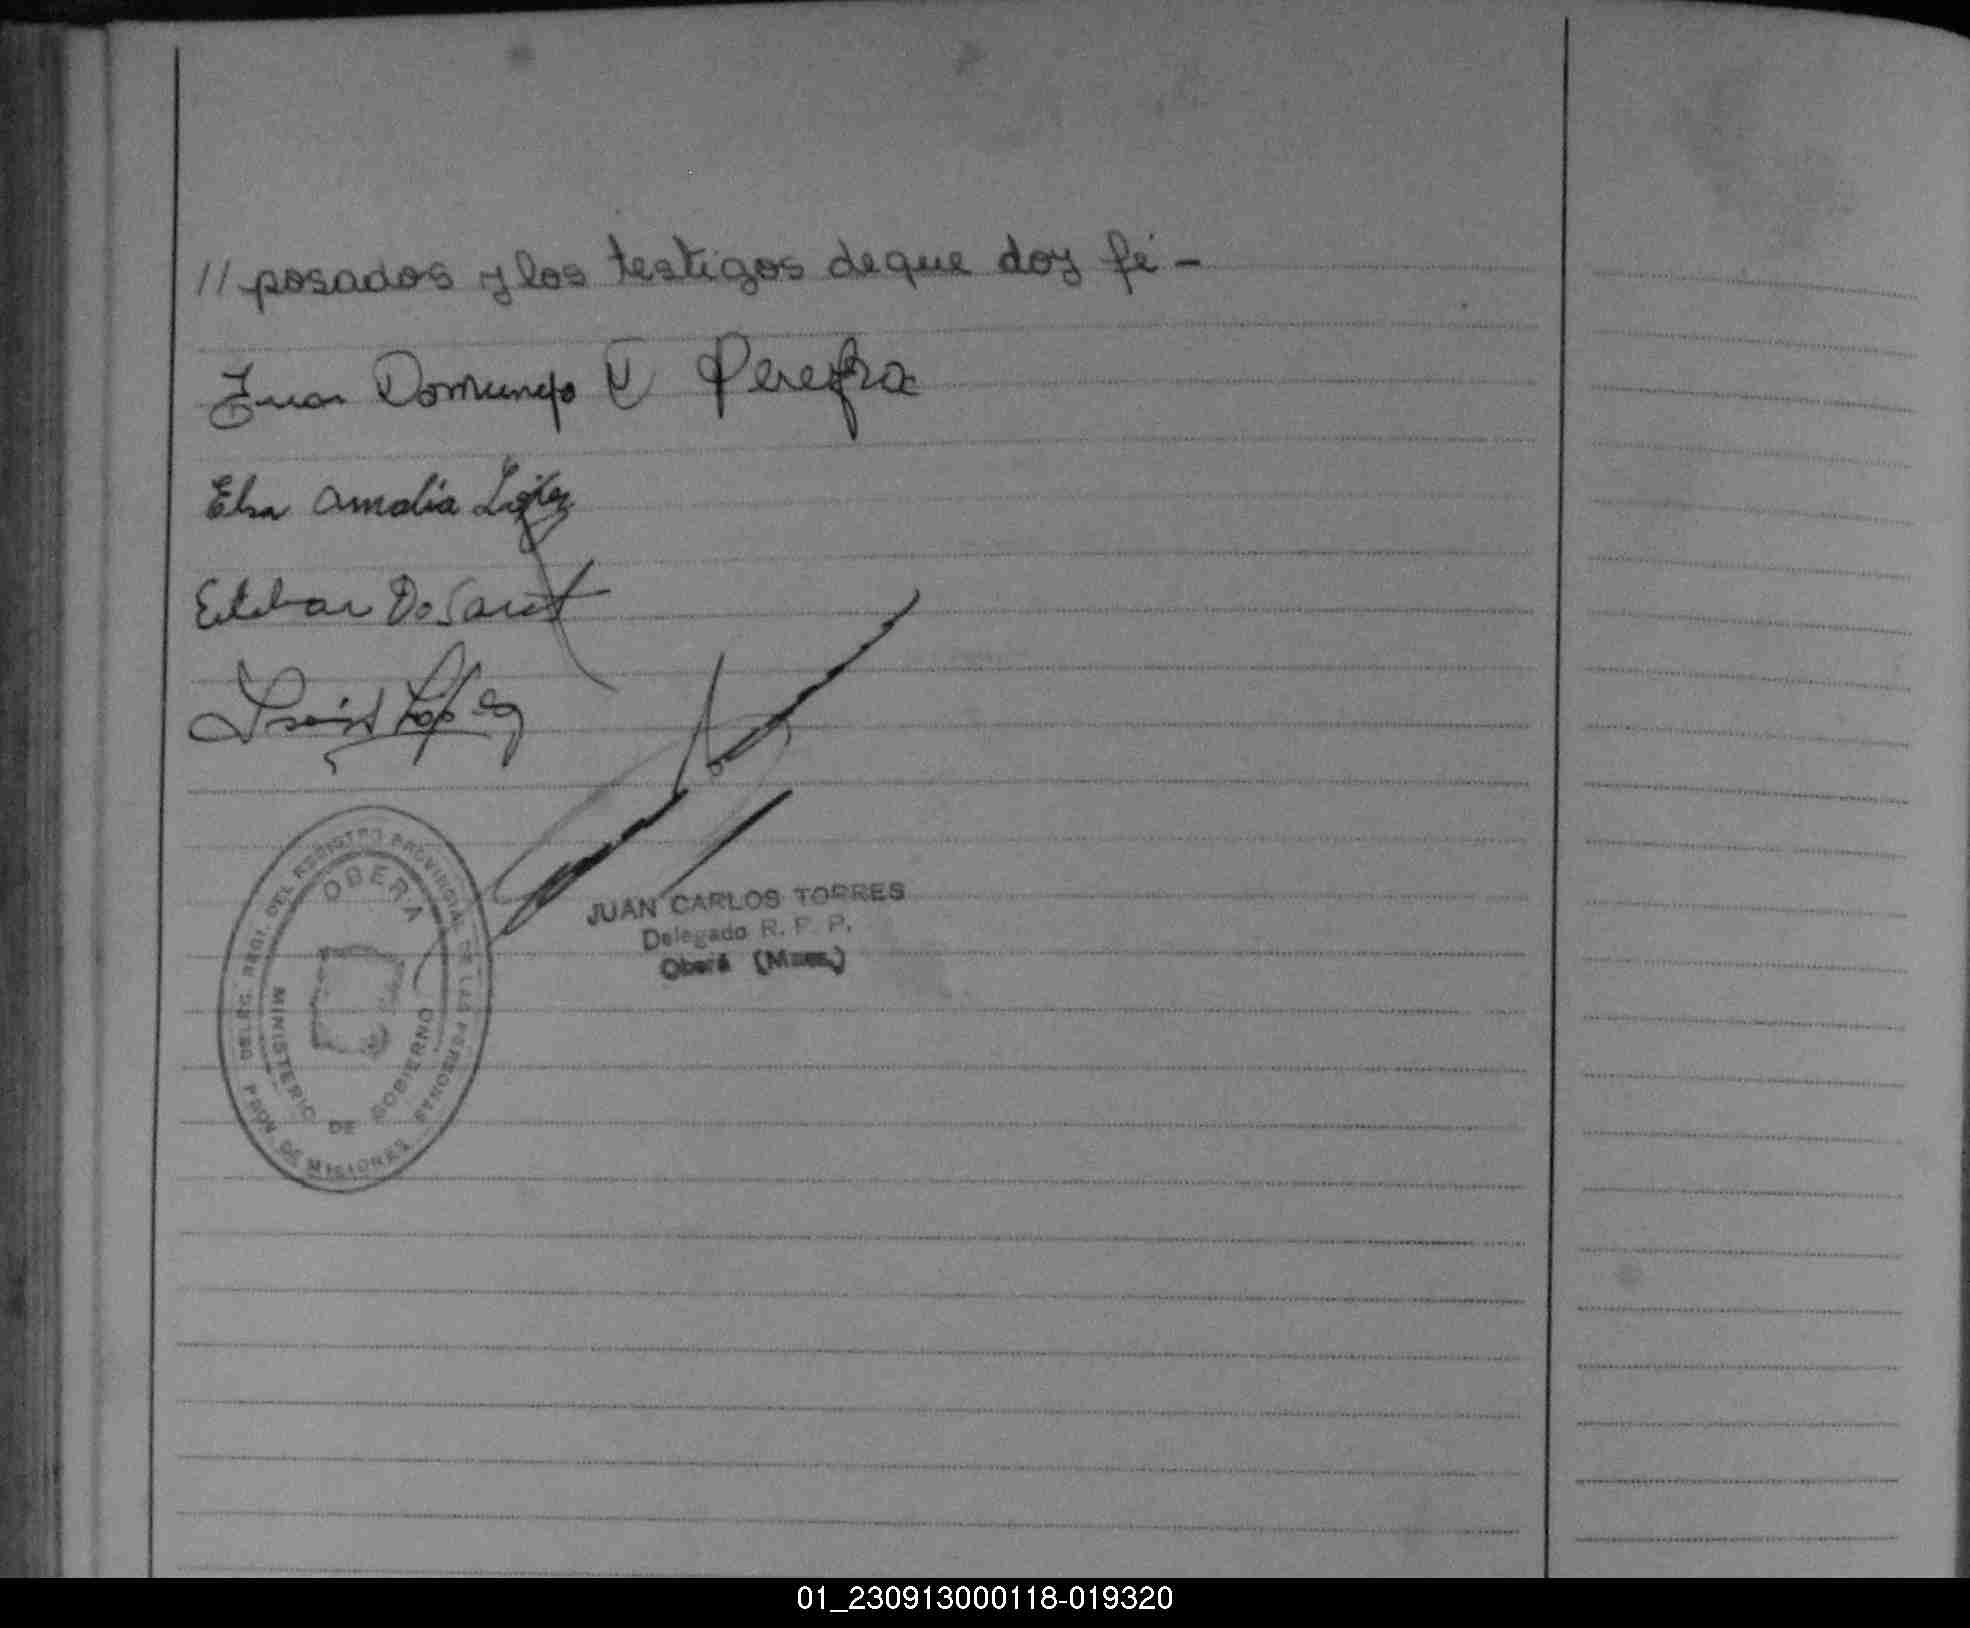 // posados y los testigos de que doy fé -
Juan Domingo V Pereyra
Elsa Amalia López
Esteban Do Sant
López
OBERA
DELEG. REGI. DEL REGISTRO PROVINCIAL DE LAS PERSONAS
MINISTERIO DE GOBIERNO
PROV. DE MISIONES
JUAN CARLOS TORRES
Delegado R. P. P.
Oberá
01_230913000118-019320